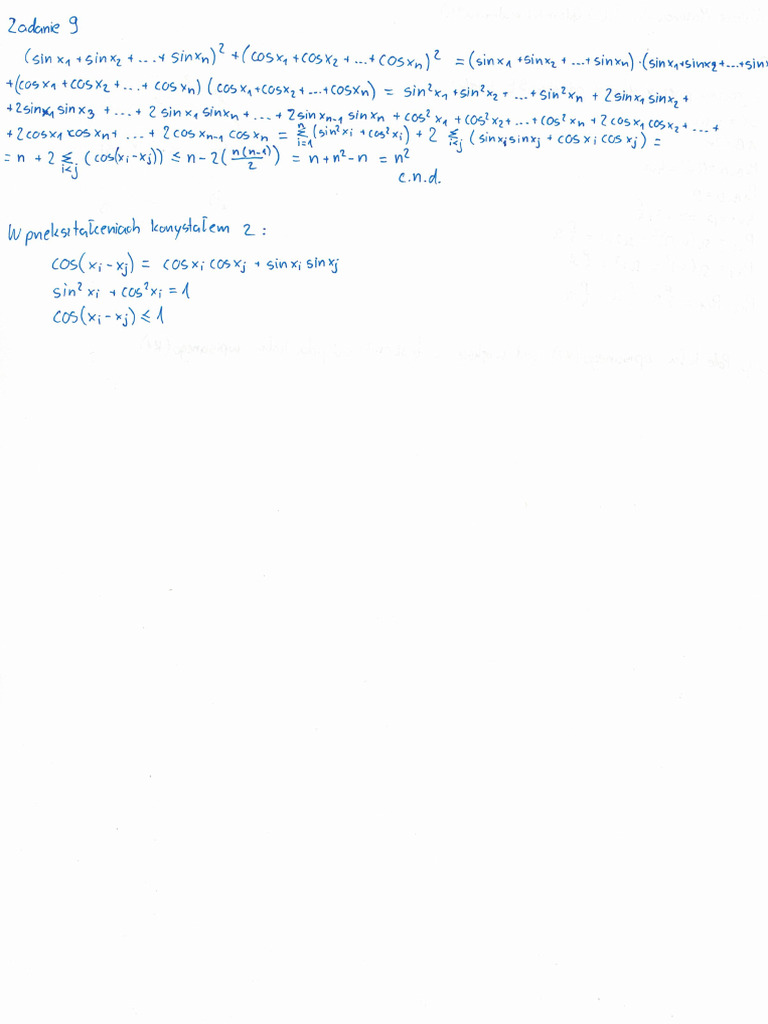 Zadanie 9
(sin x₁ + sin x₂ + ... + sin xₙ)² + (cos x₁ + cos x₂ + ... + cos xₙ)² = (sin x₁ + sin x₂ + ... + sin xₙ) · (sin x₁ + sin x₂ + ... + sin
+ (cos x₁ + cos x₂ + ... + cos xₙ) (cos x₁ + cos x₂ + ... + cos xₙ) = sin² x₁ + sin² x₂ + ... + sin² xₙ + 2 sin x₁ sin x₂ +
+ 2 sin x₁ sin x₃ + ... + 2 sin x₁ sin xₙ + ... + 2 sin xₙ₋₁ sin xₙ + cos² x₁ + cos² x₂ + ... + cos² xₙ + 2 cos x₁ cos x₂ + ... +
+ 2 cos x₁ cos xₙ + ... + 2 cos xₙ₋₁ cos xₙ = Σᵢ₌₁ⁿ (sin² xᵢ + cos² xᵢ) + 2 Σ_{i<j} (sin xᵢ sin xⱼ + cos xᵢ cos xⱼ) =
= n + 2 Σ_{i<j} (cos(xᵢ - xⱼ)) ≤ n - 2(n(n-1)/2) = n + n² - n = n²
c.n.d.
W przekształceniach korzystałem z :
cos(xᵢ - xⱼ) = cos xᵢ cos xⱼ + sin xᵢ sin xⱼ
sin² xᵢ + cos² xᵢ = 1
cos(xᵢ - xⱼ) ≤ 1